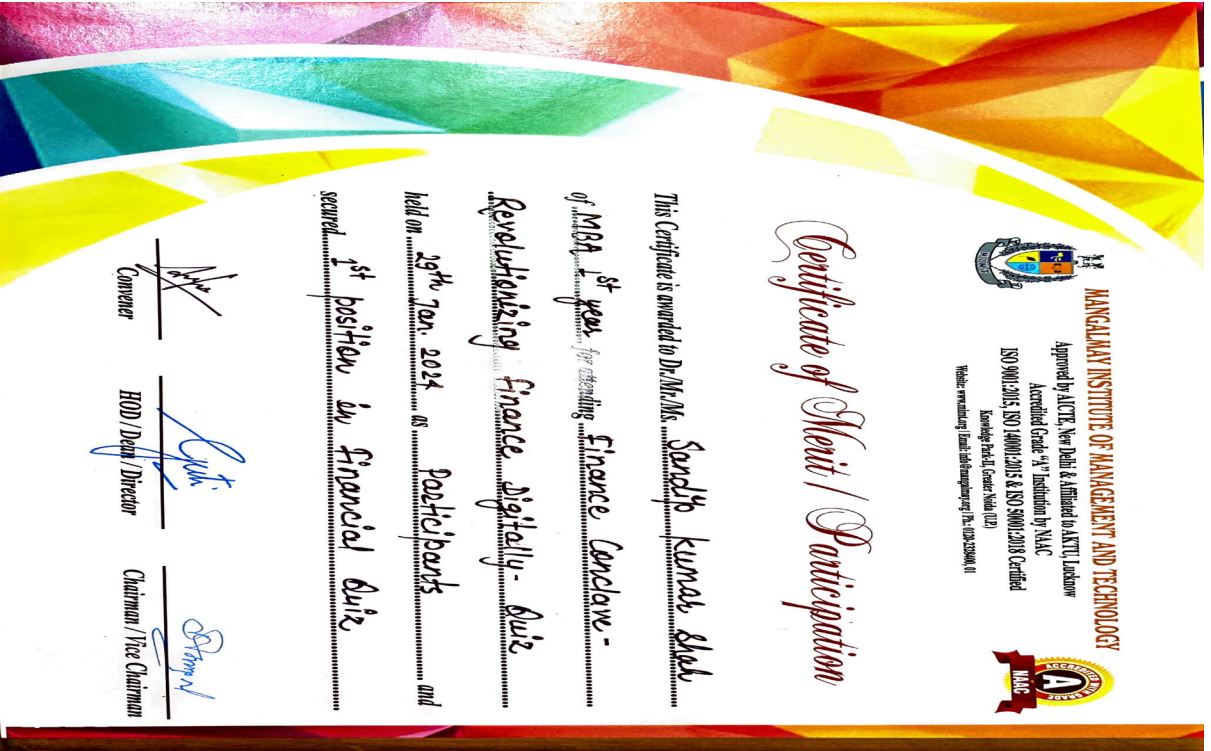 MANGALMAY INSTITUTE OF MANAGEMENT AND TECHNOLOGY
Approved by AICTE, New Delhi & Affiliated to AKTU, Lucknow
Accredited Grade "A" Institution by NAAC
ISO 9001:2015, ISO 14001:2015 & ISO 50001:2018 Certified
Knowledge Park-II, Greater Noida (U.P.)
Website: www.mimt.org | Email: info@mangalmay.org | Ph.: 0120-2320400, 01
ACCREDITED WITH GRADE
A
NAAC
Certificate of Merit / Participation
This Certificate is awarded to Dr./Mr./Ms. Sandip kumar Shah
of MBA 1st year for attending Finance Conclave-
Revolutionizing Finance Digitally- Quiz
held on 29th Jan. 2024 as Participants and
secured 1st position in Financial Quiz
Convener
HOD / Dean / Director
Chairman / Vice Chairman